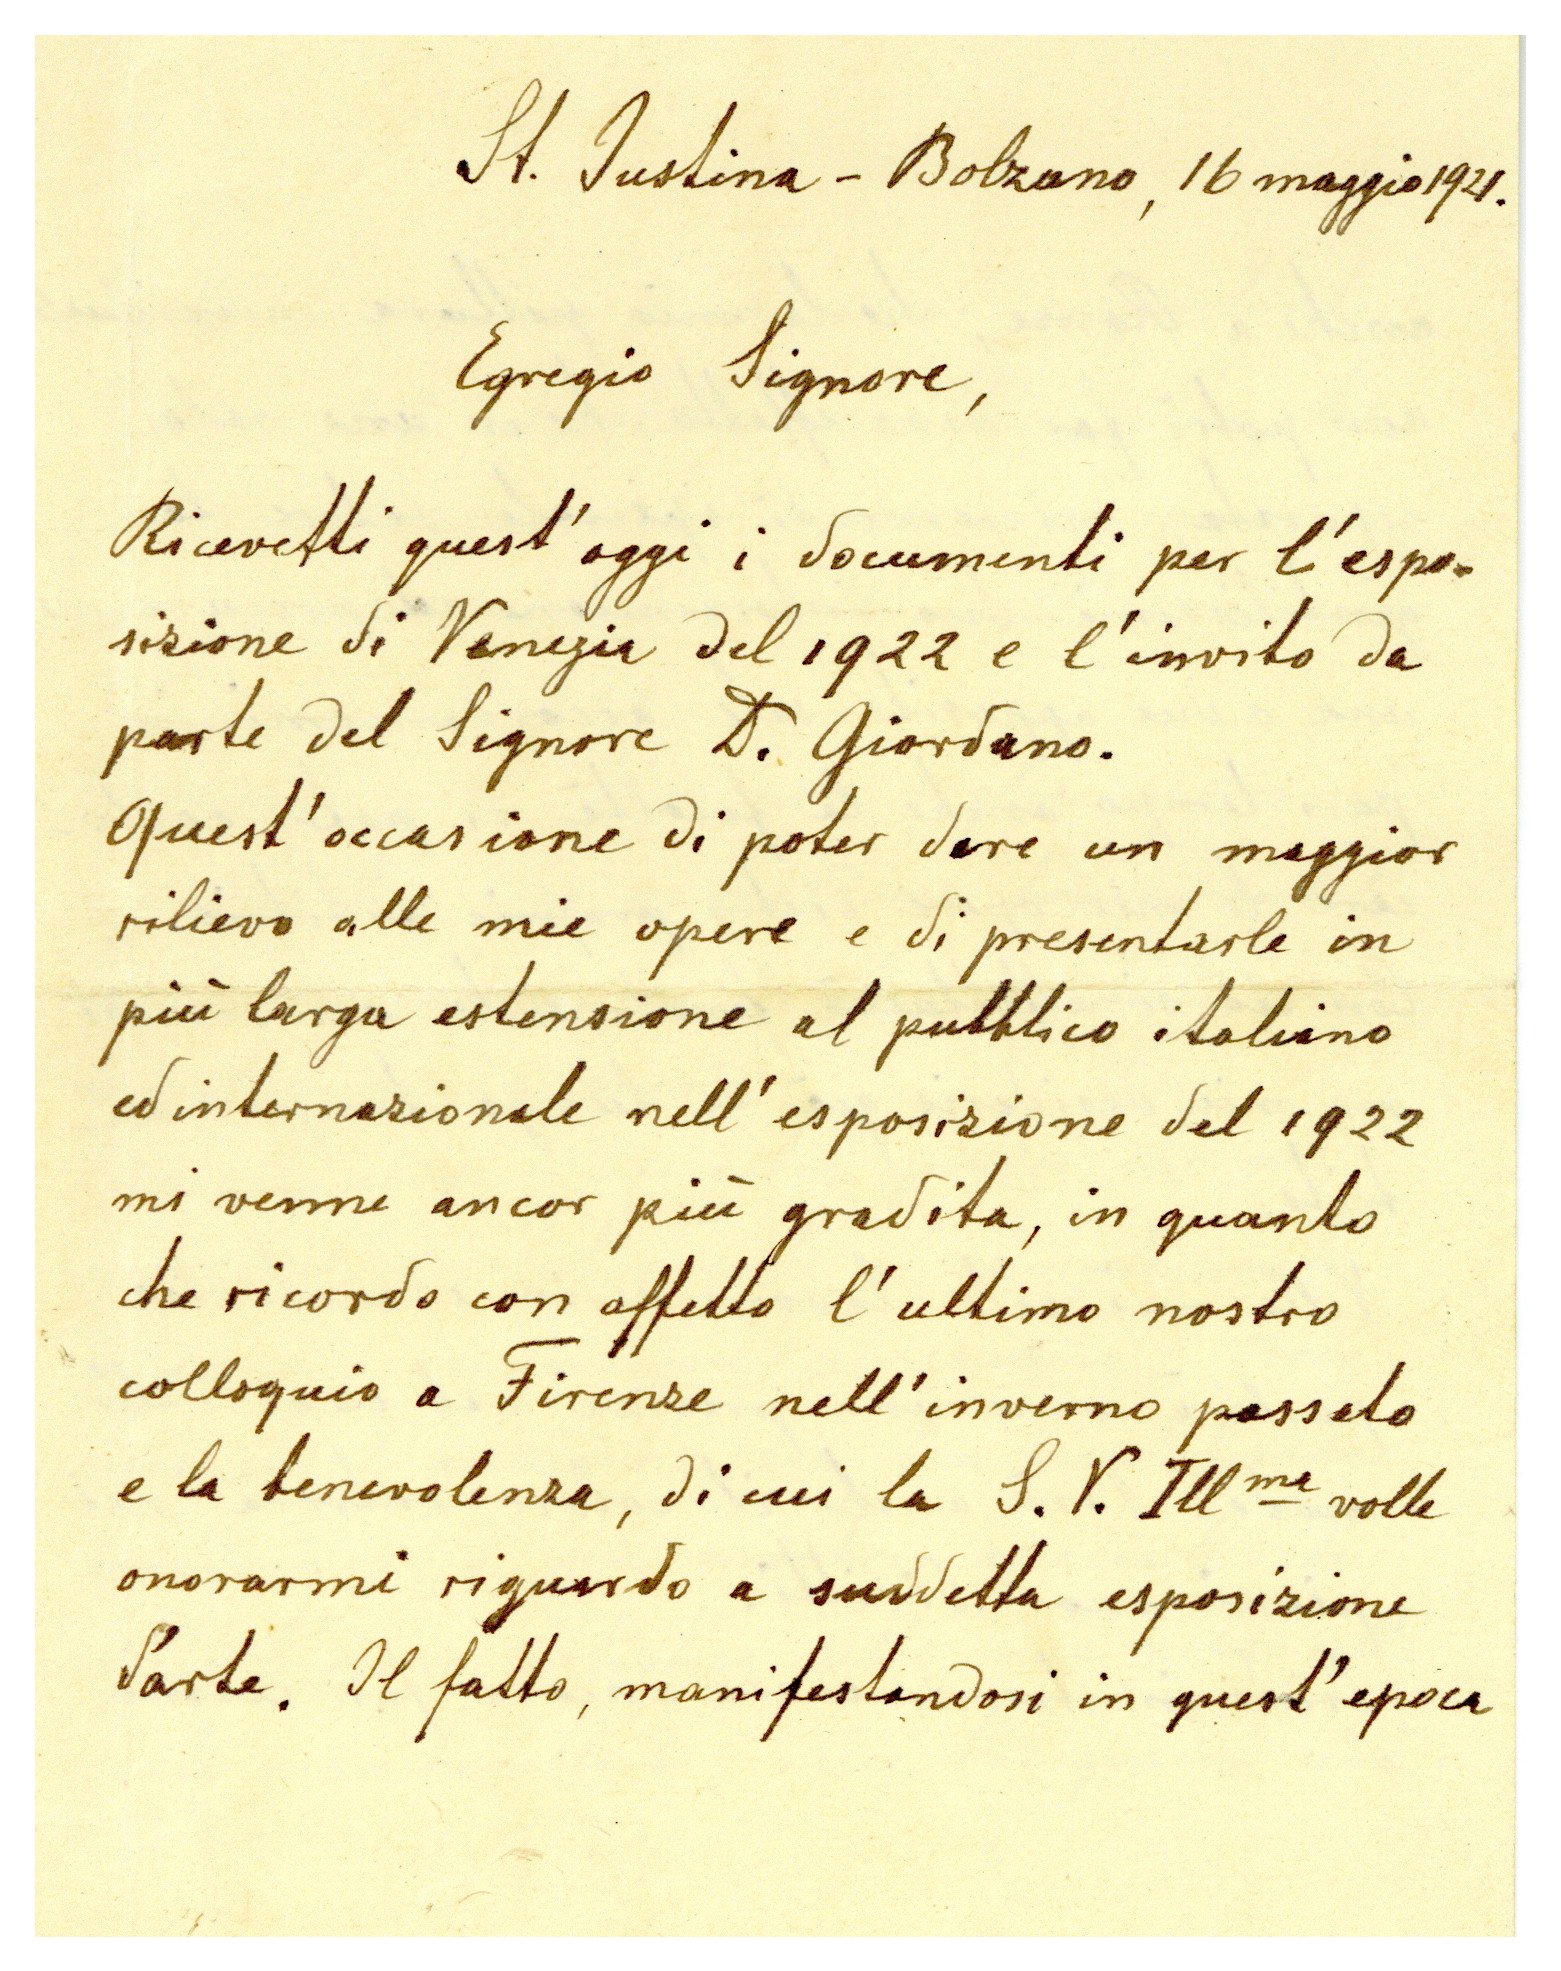 St. Justina – Bolzano, 16 maggio 1921.
Egregio Signore,
Ricevetti quest'oggi i documenti per l'espo-
sizione di Venezia del 1922 e l'invito da
parte del Signore D. Giordano.
Quest'occasione di poter dare un maggior
rilievo alle mie opere e di presentarle in
più larga estensione al pubblico italiano
ed internazionale nell'esposizione del 1922
mi venne ancor più gradita, in quanto
che ricordo con affetto l'ultimo nostro
colloquio a Firenze nell'inverno passato
e la benevolenza, di cui la S. V. Ill<sup>ma</sup> volle
onorarmi riguardo a suddetta esposizione
d'arte. Il fatto, manifestandosi in quest'epoca